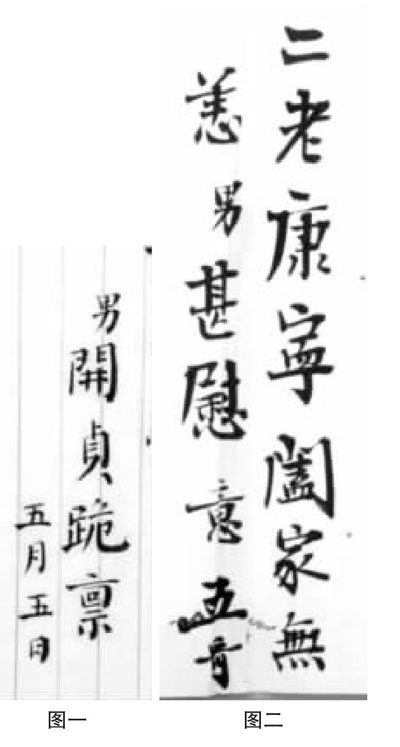 男開貞跪禀
五月五日
图一
二老康寧闔家無
恙男甚慰意五
图二